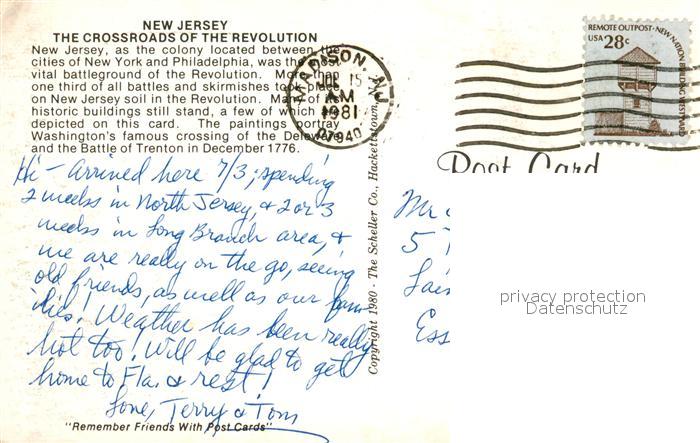 NEW JERSEY
THE CROSSROADS OF THE REVOLUTION
New Jersey, as the colony located between the
cities of New York and Philadelphia, was the most
vital battleground of the Revolution. More than
one third of all battles and skirmishes took place
on New Jersey soil in the Revolution. Many of its
historic buildings still stand, a few of which are
depicted on this card. The paintings portray
Washington's famous crossing of the Delaware
and the Battle of Trenton in December 1776.
MADISON, NJ
JUL 15
AM
1981
07940
REMOTE OUTPOST·NEW NATION BUILDING WESTWARD
USA 28c
Post Card
Hi - Arrived here 7/3; spending
2 weeks in North Jersey, & 2 or 3
weeks in Long Branch area, &
we are really on the go, seeing
old friends, as well as our fam
ilies! Weather has been really
hot too! Will be glad to get
home to Fla. & rest!
Love, Terry & Tom
"Remember Friends With Post Cards"
Copyright 1980 - The Scheller Co., Hackettstown, N.J.
Mr
5
Ess
privacy protection
Datenschutz